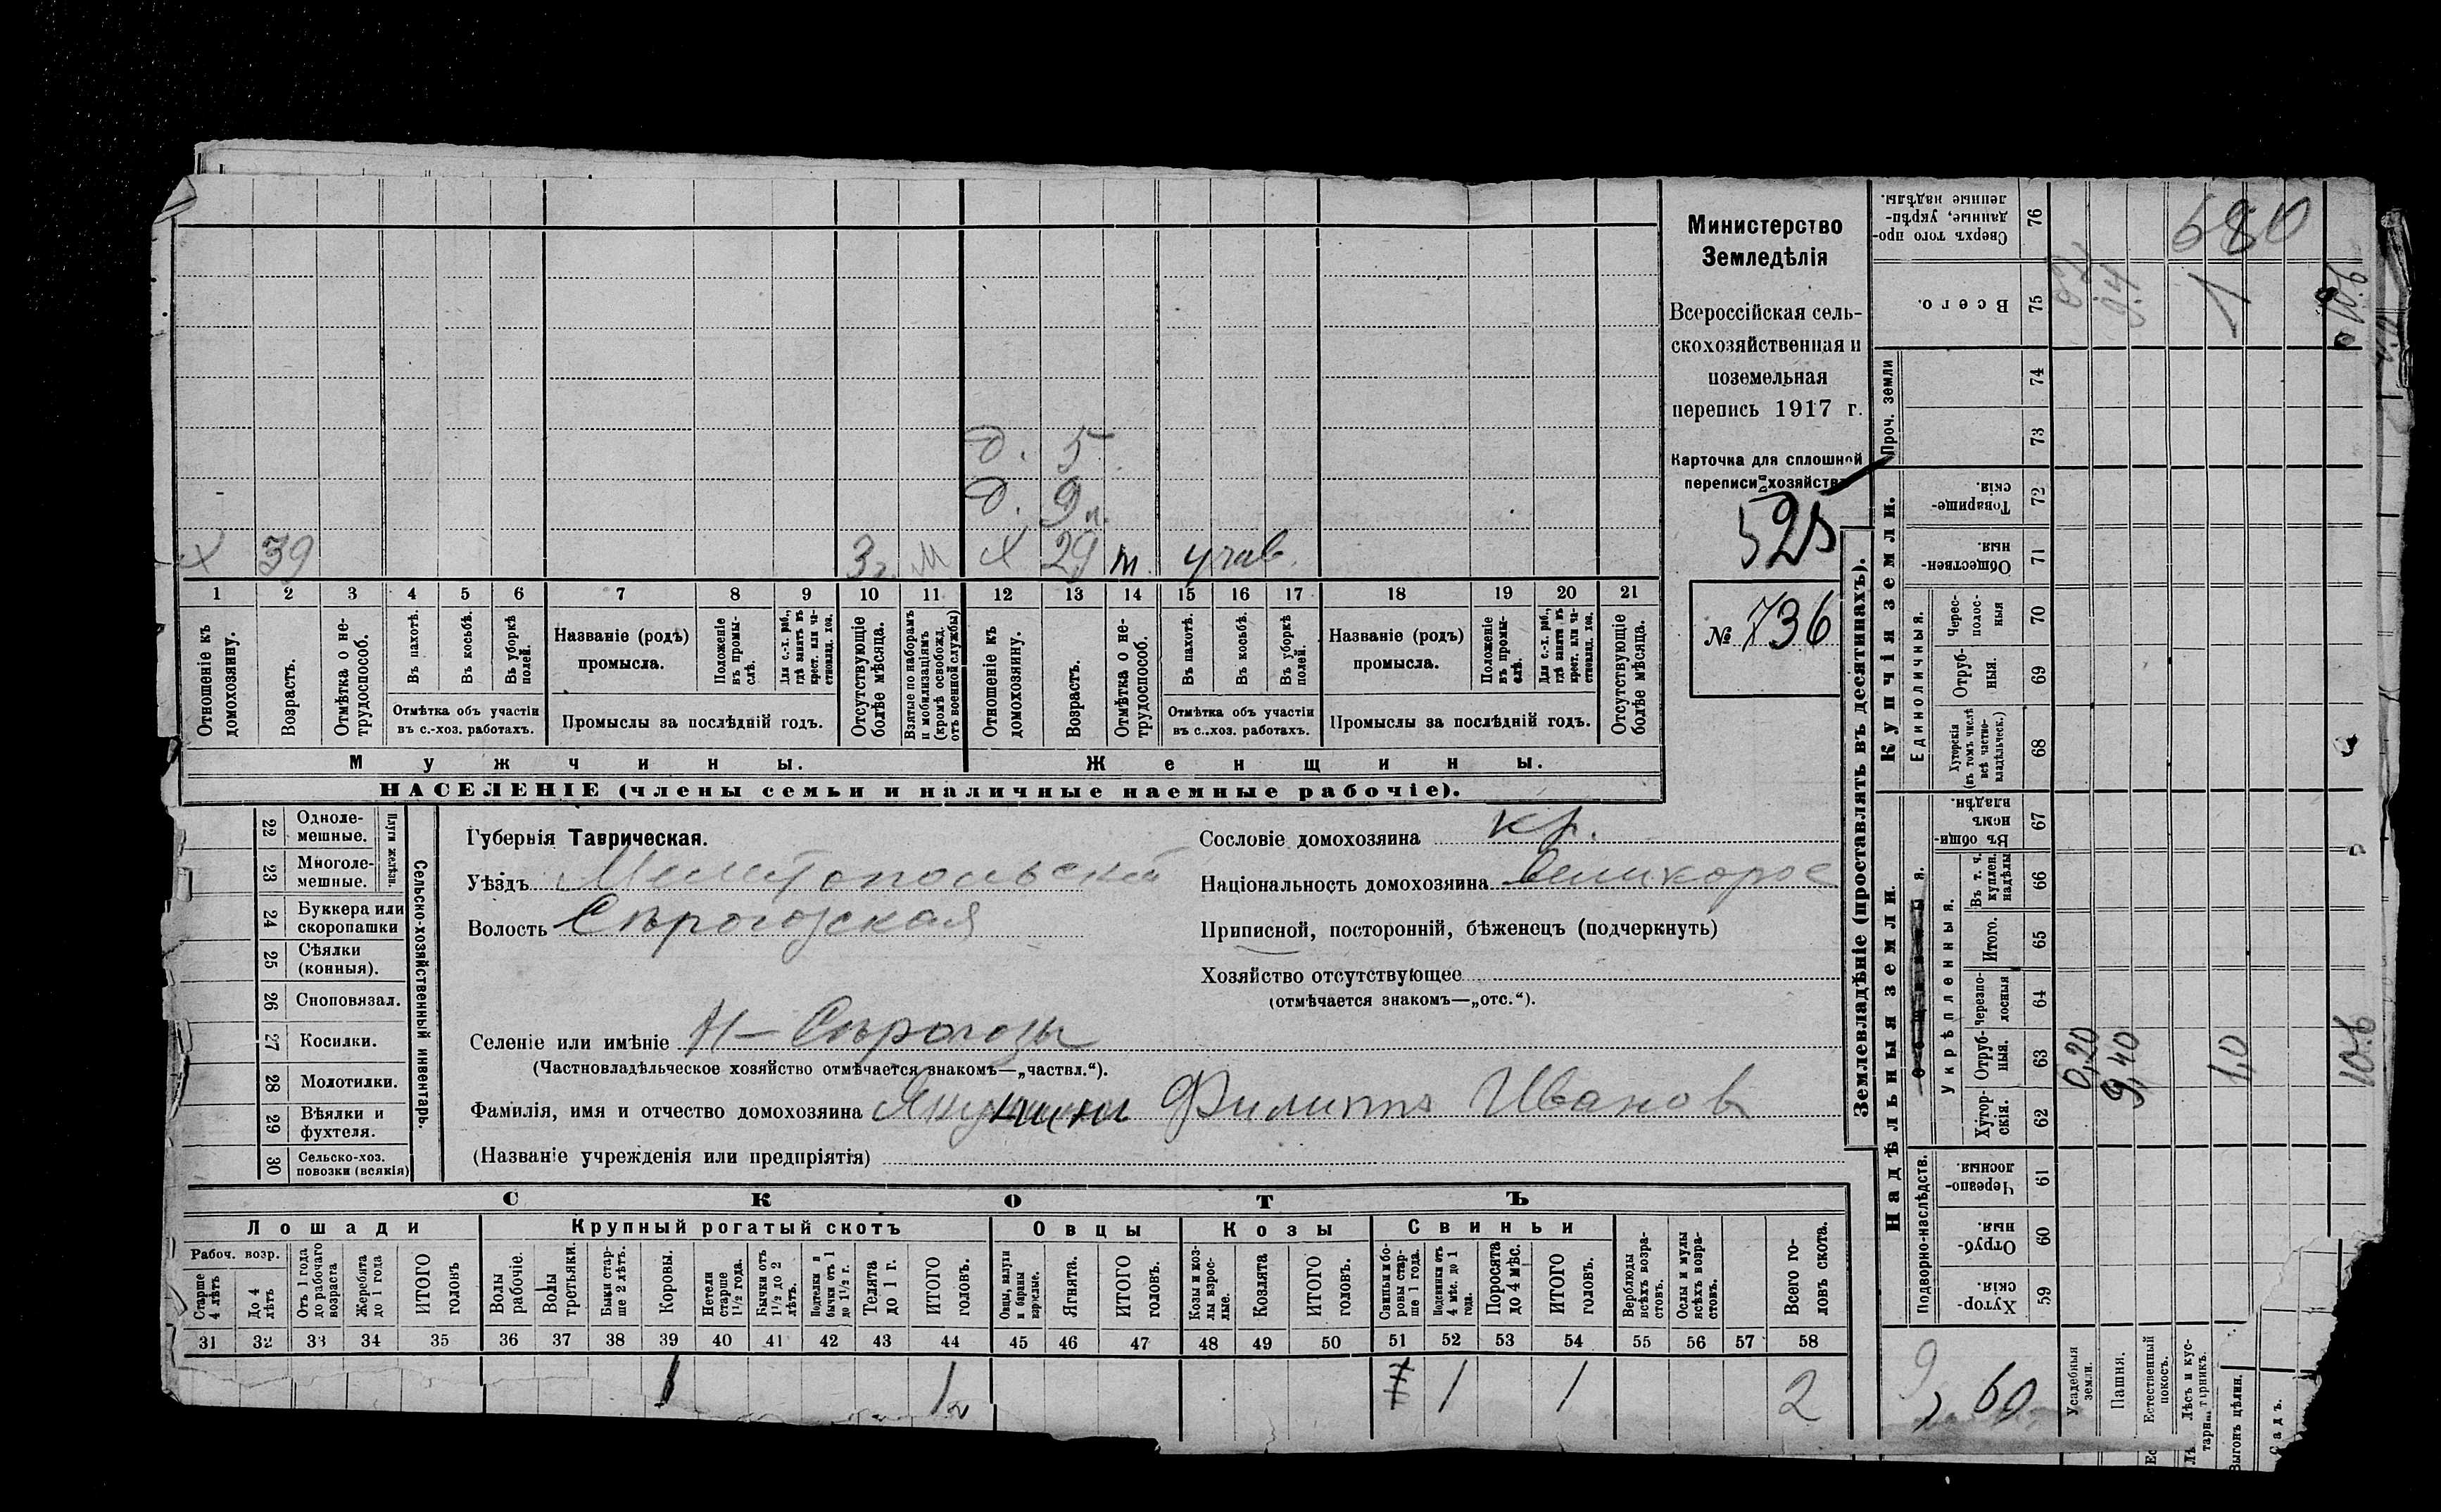 д. 5
д. 9 л.
х 39 3 г. м х 29 т. учав.
1 2 3 4 5 6 7 8 9 10 11 12 13 14 15 16 17 18 19 20 21
Отношеніе къ домохозяину.
Возрастъ.
Отмѣтка о не-трудоспособ.
Въ пахотѣ.
Въ косьбѣ.
Въ уборкѣ полей.
Отмѣтка объ участіи въ с.-хоз. работахъ.
Названіе (родъ) промысла.
Положеніе въ промы-слѣ.
Для с.-х. раб., гдѣ занятъ въ крест. или ча-стновлад. хоз.
Промыслы за послѣдній годъ.
Отсутствующіе болѣе мѣсяца.
Взятые по наборамъ и мобилизаціямъ (кромѣ освобожд. отъ военной службы)
Отношеніе къ домохозяину.
Возрастъ.
Отмѣтка о не-трудоспособ.
Въ пахотѣ.
Въ косьбѣ.
Въ уборкѣ полей.
Отмѣтка объ участіи въ с.-хоз. работахъ.
Названіе (родъ) промысла.
Положеніе въ промы-слѣ.
Для с.-х. раб., гдѣ занята въ крест. или ча-стновлад. хоз.
Промыслы за послѣдній годъ.
Отсутствующіе болѣе мѣсяца.
Мужчины. Женщины.
НАСЕЛЕНІЕ (члены семьи и наличные наемные рабочіе).
Министерство
Земледѣлія
Всероссійская сель-
скохозяйственная и
поземельная
перепись 1917 г.
Карточка для сплошной
переписи хозяйств
525
№ 736
22 Одноле-мешные.
23 Многоле-мешные.
Плуги желѣзн.
24 Буккера или скоропашки
25 Сѣялки (конныя).
26 Сноповязал.
27 Косилки.
28 Молотилки.
29 Вѣялки и фухтеля.
30 Сельско-хоз. повозки (всякія)
Сельско-хозяйственный инвентарь.
Губернія Таврическая.
Уѣздъ Мелитопольскій
Волость Сѣрогозская
Сословіе домохозяина кр.
Національность домохозяина Великорос
Приписной, посторонній, бѣженецъ (подчеркнуть)
Хозяйство отсутствующее
(отмѣчается знакомъ—„отс.“).
Селеніе или имѣніе Н-Сѣрогозы
(Частновладѣльческое хозяйство отмѣчается знакомъ—„частвл.“).
Фамилія, имя и отчество домохозяина Филиппъ Иванов
(Названіе учрежденія или предпріятія)
СКОТЪ
Лошади Крупный рогатый скотъ Овцы Козы Свиньи
Рабоч. возр.
Старше 4 лѣтъ
До 4 лѣтъ
Отъ 1 года до рабочаго возраста
Жеребята до 1 года
ИТОГО головъ
Волы рабочіе.
Волы третьяки.
Быки стар-ше 2 лѣтъ.
Коровы.
Нетели старше 1½ года.
Бычки отъ 1½ до 2 лѣтъ.
Подтелки и бычки отъ 1 до 1½ г.
Телята до 1 г.
ИТОГО головъ.
Овцы, валухи и бараны взрослые.
Ягнята.
ИТОГО головъ.
Козы и коз-лы взрос-лые.
Козлята
ИТОГО головъ.
Свиньи и бо-ровы стар-ше 1 года.
Подсвинки отъ 4 мѣс. до 1 года.
Поросята до 4 мѣс.
ИТОГО головъ.
Верблюды всѣхъ возра-стовъ.
Ослы и мулы всѣхъ возра-стовъ.
Всего го-ловъ скота.
31 32 33 34 35 36 37 38 39 40 41 42 43 44 45 46 47 48 49 50 51 52 53 54 55 56 57 58
1 1 1 1 2
Землевладѣніе (проставлять въ десятинахъ).
Надѣльныя земли. Купчія земли. Проч. земли
Подворно-наслѣдств.
Укрѣпленныя.
Единоличныя.
Хутор-скія. 59
Отруб-ныя. 60
Черезпо-лосныя. 61
Хутор-скія. 62
Отруб-ныя. 63
Черезпо-лосныя 64
Итого. 65
Въ т. ч. куплен. надѣлы 66
Въ общи-нномъ владѣн. 67
Хуторскія (въ томъ числѣ всѣ частно-владѣльческ.) 68
Отруб-ныя. 69
Черес-полос-ныя 70
Обществен-ныя. 71
Товарище-скія. 72
73
74
Всего. 75
Сверхъ того про-данные, укрѣп-ленные надѣлы. 76
Усадебныя земли. 0,20
Пашня. 9,40 9.4
Естественный покосъ.
Лѣсъ и кус-тарникъ.
Выгонъ цѣлин. 1,0 1
Садъ.
10.6 10.6
680
9,60